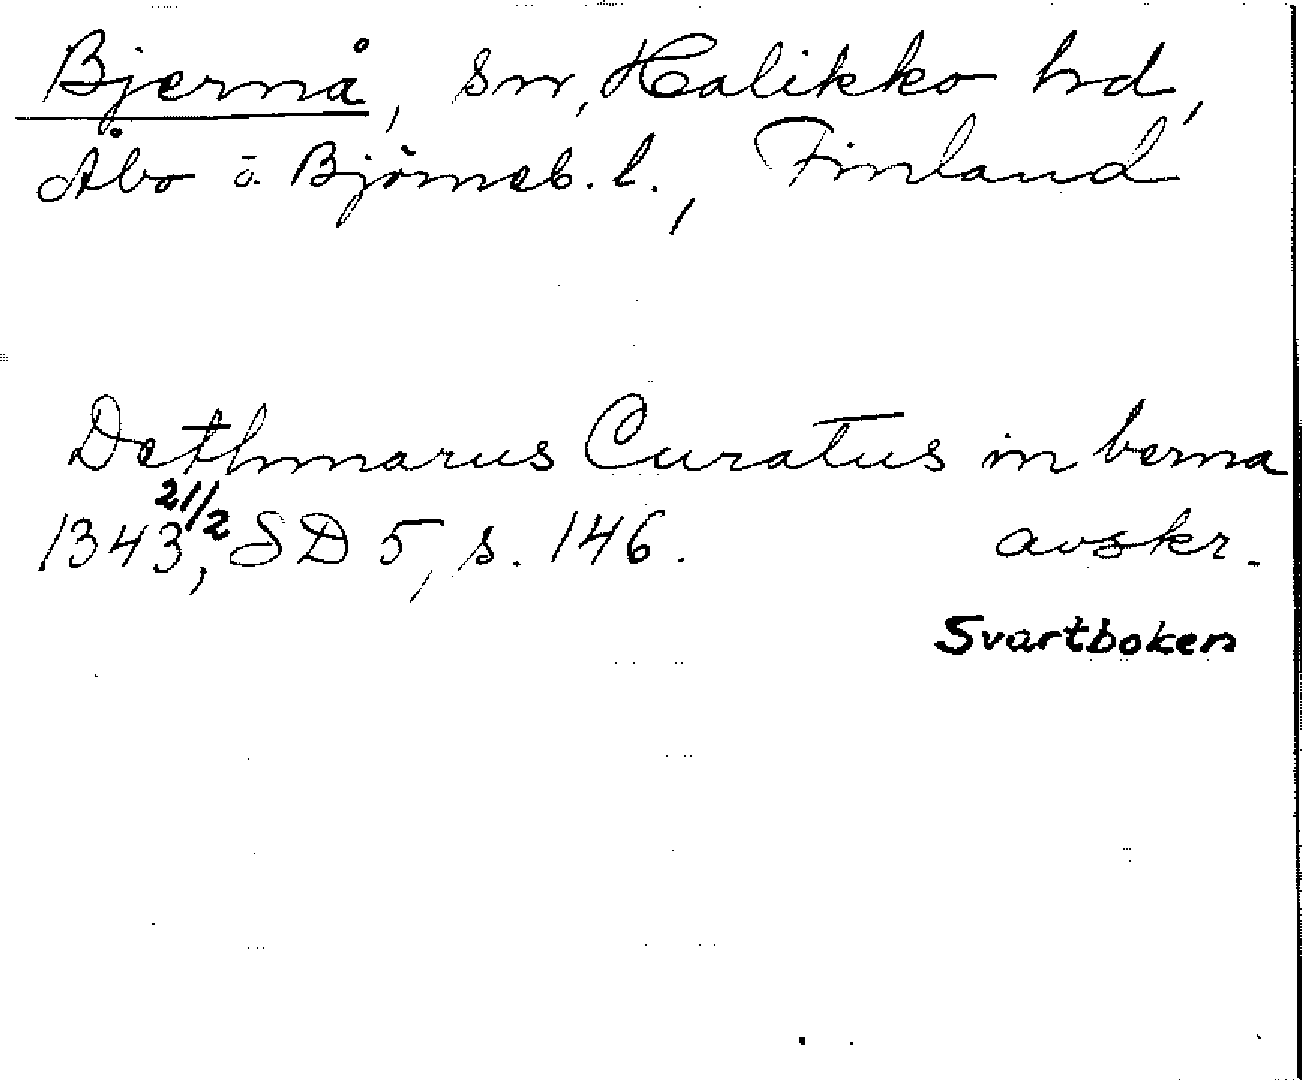 Bjernå, sn, Halikko hd,
Åbo o. Björneb. l., Finland
Dethmarus Curatus in berna
1343 21/2, SD 5, s. 146. avskr.
Svartboken